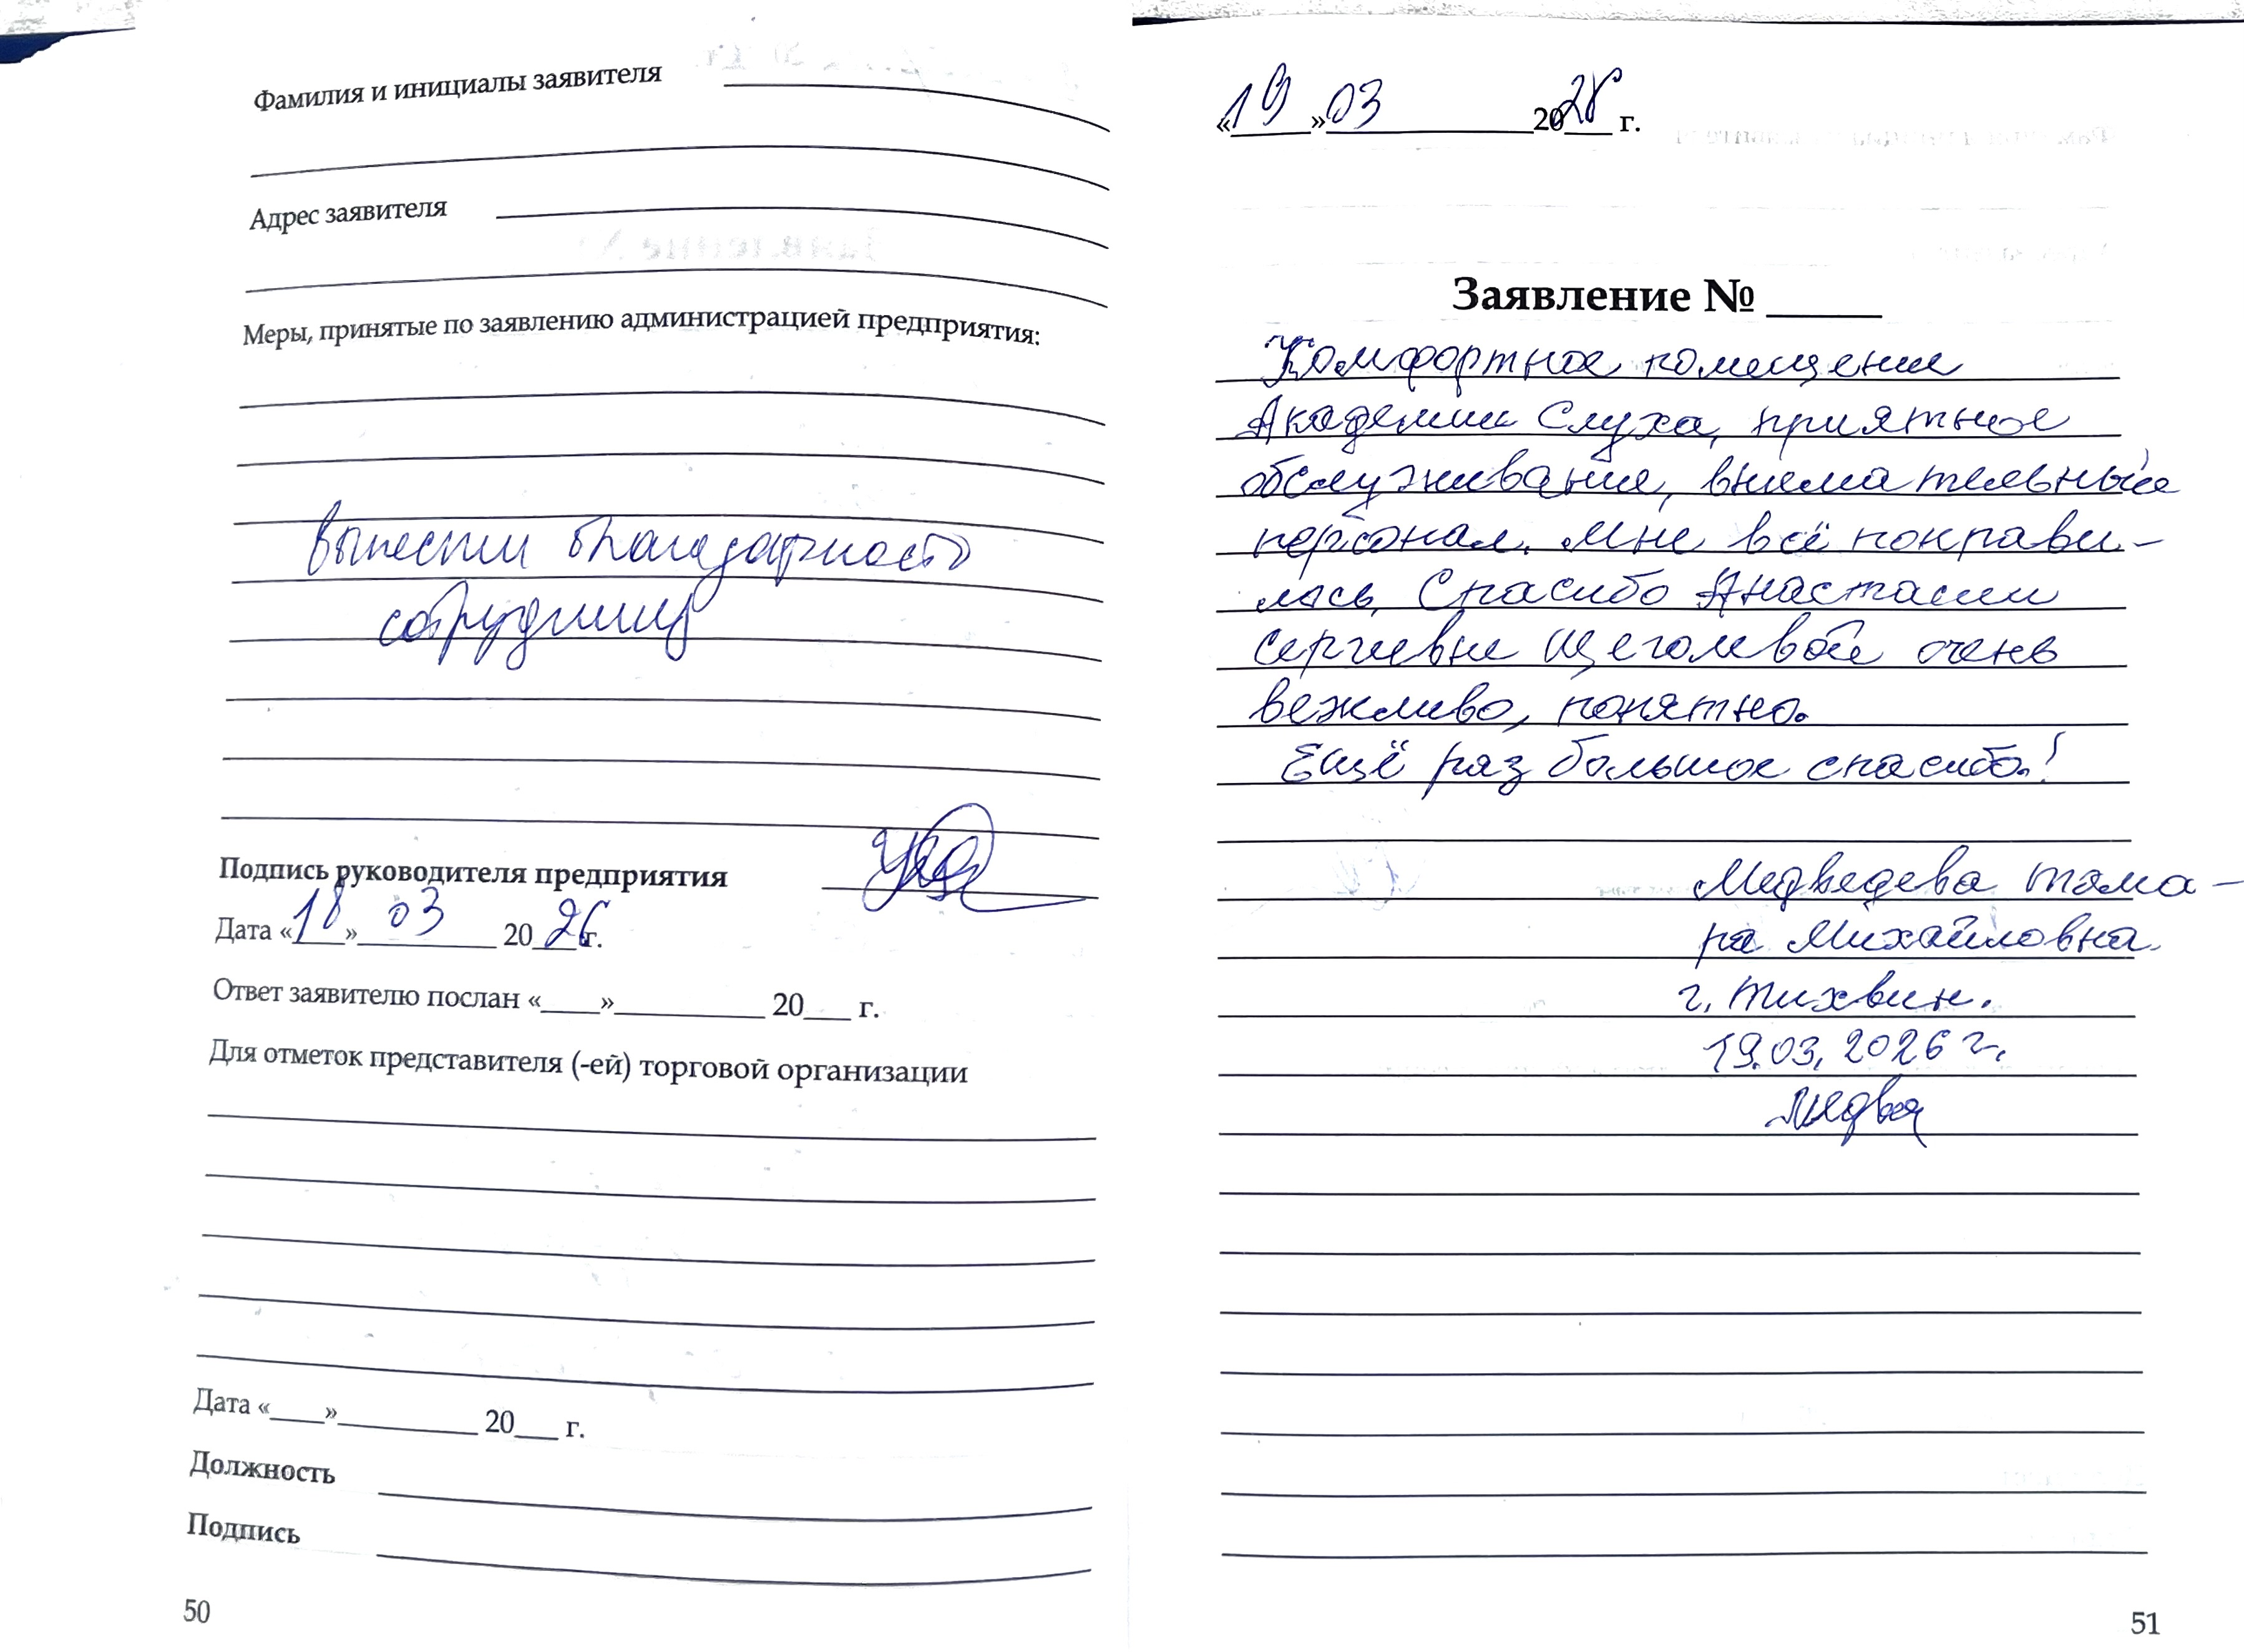 Фамилия и инициалы заявителя
Адрес заявителя
Меры, принятые по заявлению администрацией предприятия:
вынести благодарность
сотруднику
Подпись руководителя предприятия
Дата «18» 03 2026 г.
Ответ заявителю послан «____»__________ 20___ г.
Для отметок представителя (-ей) торговой организации
Дата «____»__________ 20___ г.
Должность
Подпись
50
«19» 03 2026 г.
Заявление № _____
Комфортное помещение
Академии Слуха, приятное
обслуживание, внимательный
персонал. Мне всё понрави-
лось. Спасибо Анастасии
Сергеевне Щеголевой очень
вежливо, понятно.
Ещё раз большое спасибо!
Медведева Тама-
ра Михайловна.
г. Тихвин.
19.03.2026 г.
51